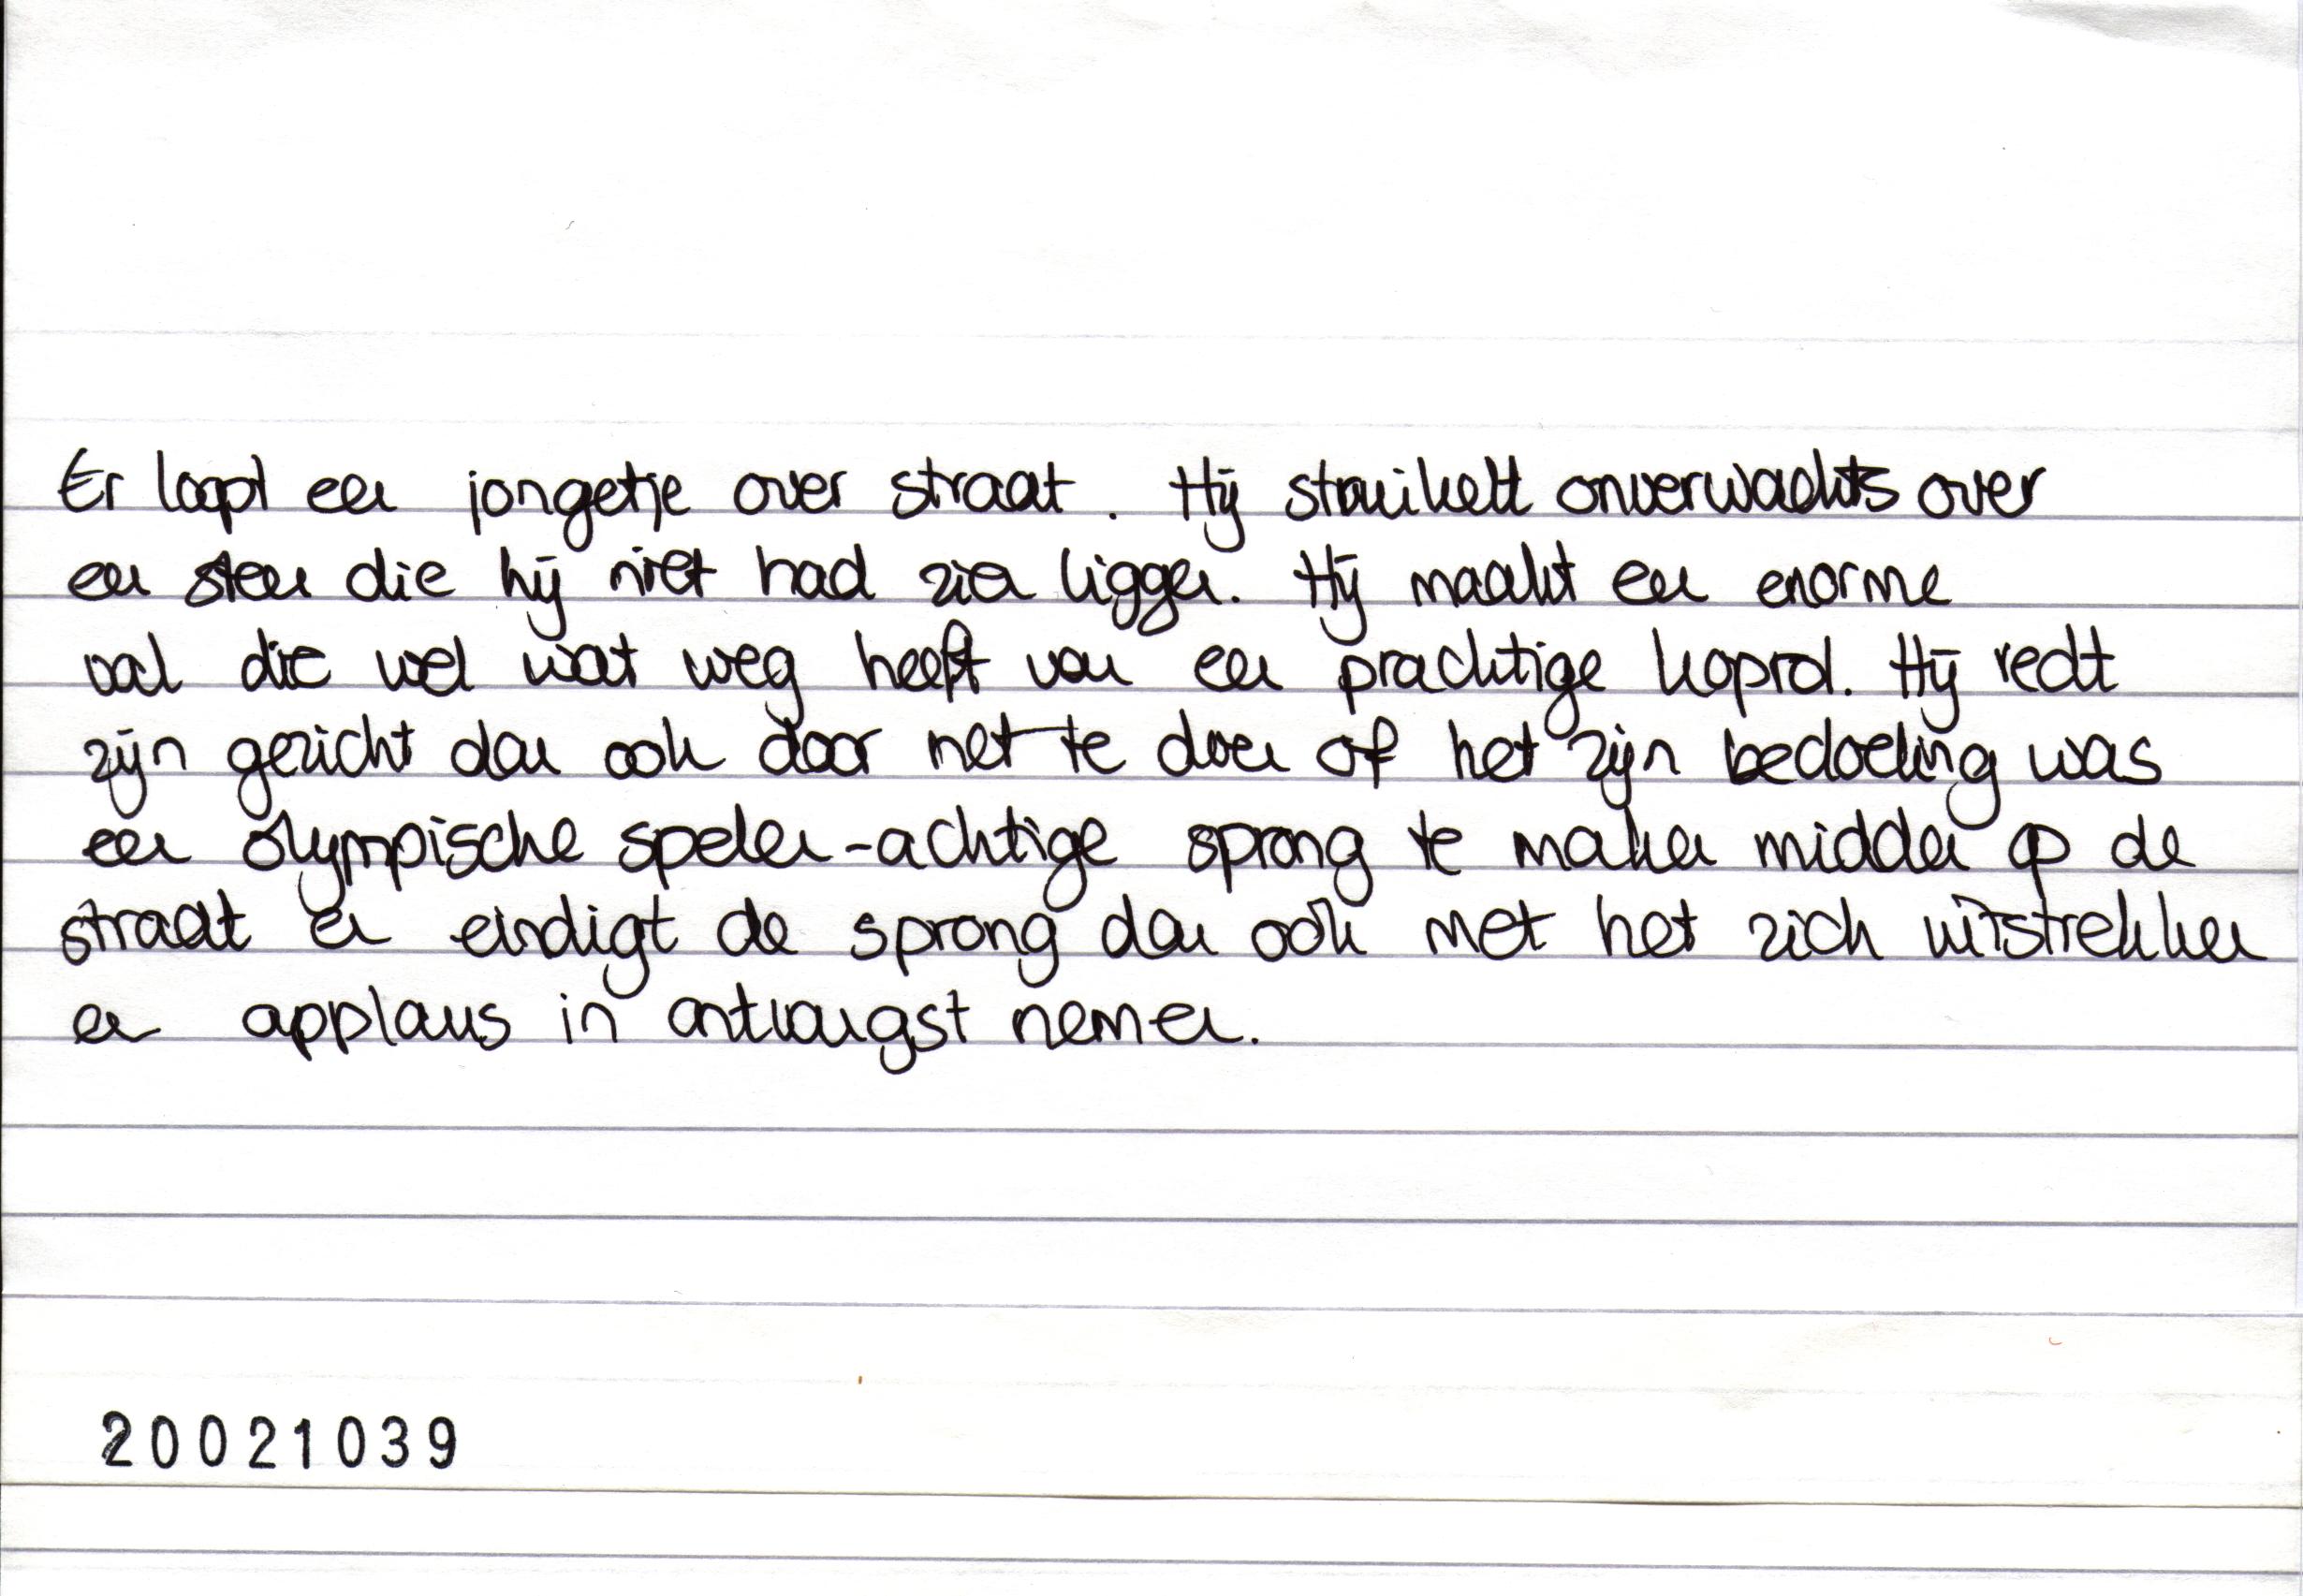 Er loopt een jongetje over straat. Hij struikelt onverwachts over
een steen die hij niet had zien liggen. Hij maakt een enorme
val die wel wat weg heeft van een prachtige koprol. Hij redt
zijn gezicht dan ook door net te doen of het zijn bedoeling was
een olympische spelen-achtige sprong te maken midden op de
straat en eindigt de sprong dan ook met het zich uitstrekken
en applaus in ontvangst nemen.
20021039